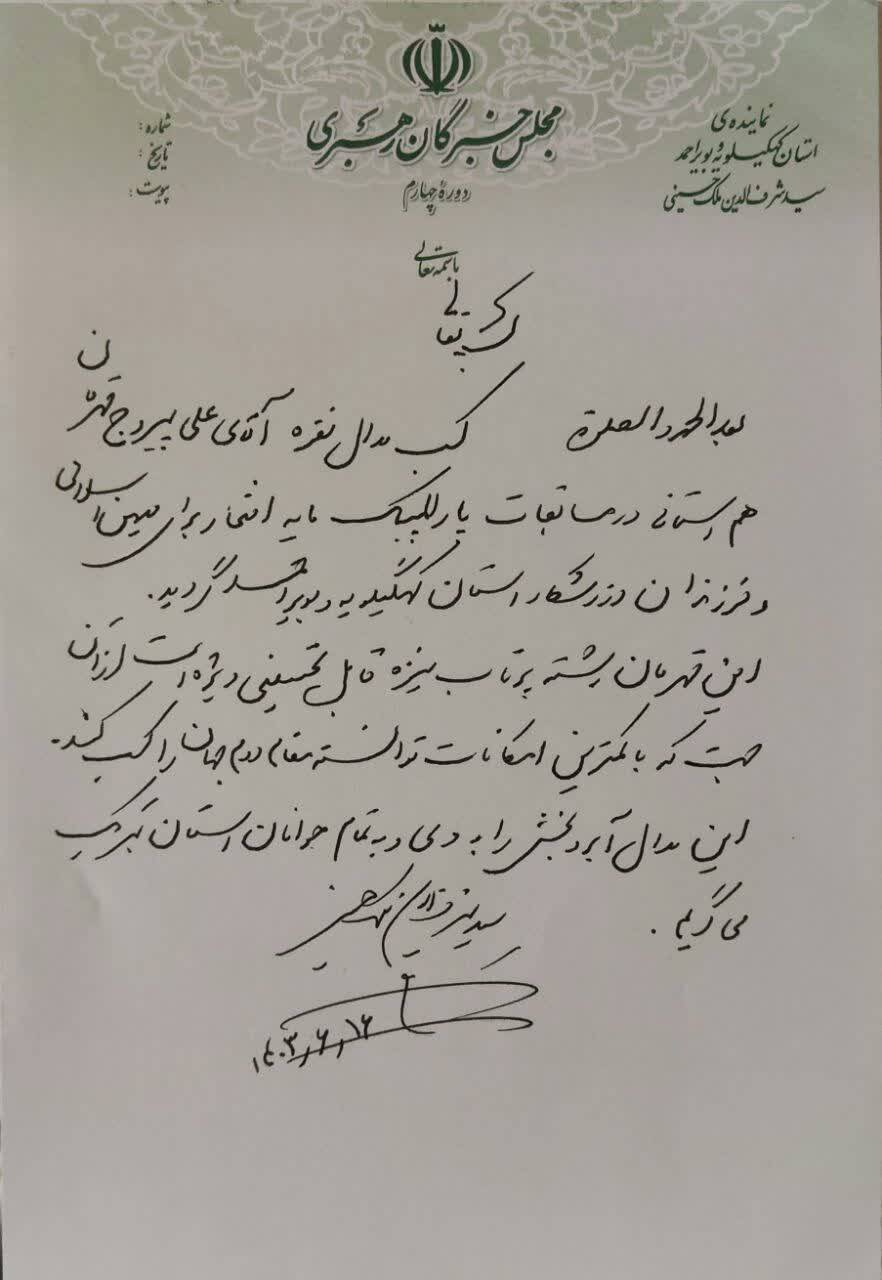 مجلس خبرگان رهبری
دوره چهارم
نماینده‌ی
استان کهگیلویه و بویراحمد
سید شرف‌الدین ملک حسینی
شماره :
تاریخ :
پیوست :
باسمه تعالی
بعد الحمد و الصلوة کسب مدال نقره آقای علی پیروج قهرمان
هم استانی در مسابقات پارالمپیک مایه افتخار برای میهن اسلامی
و فرزندان ورزشکار استان کهگیلویه و بویراحمد گردید.
این قهرمان رشته پرتاب نیزه قابل تحسینی ویژه است از آن
جهت که با کمترین امکانات توانسته مقام دوم جهان را کسب کند.
این مدال آبروبخش را به وی و به تمام جوانان استان تبریک
می گویم .
سید شرف الدین ملک حسینی
۱۴۰۳/۶/۱۶